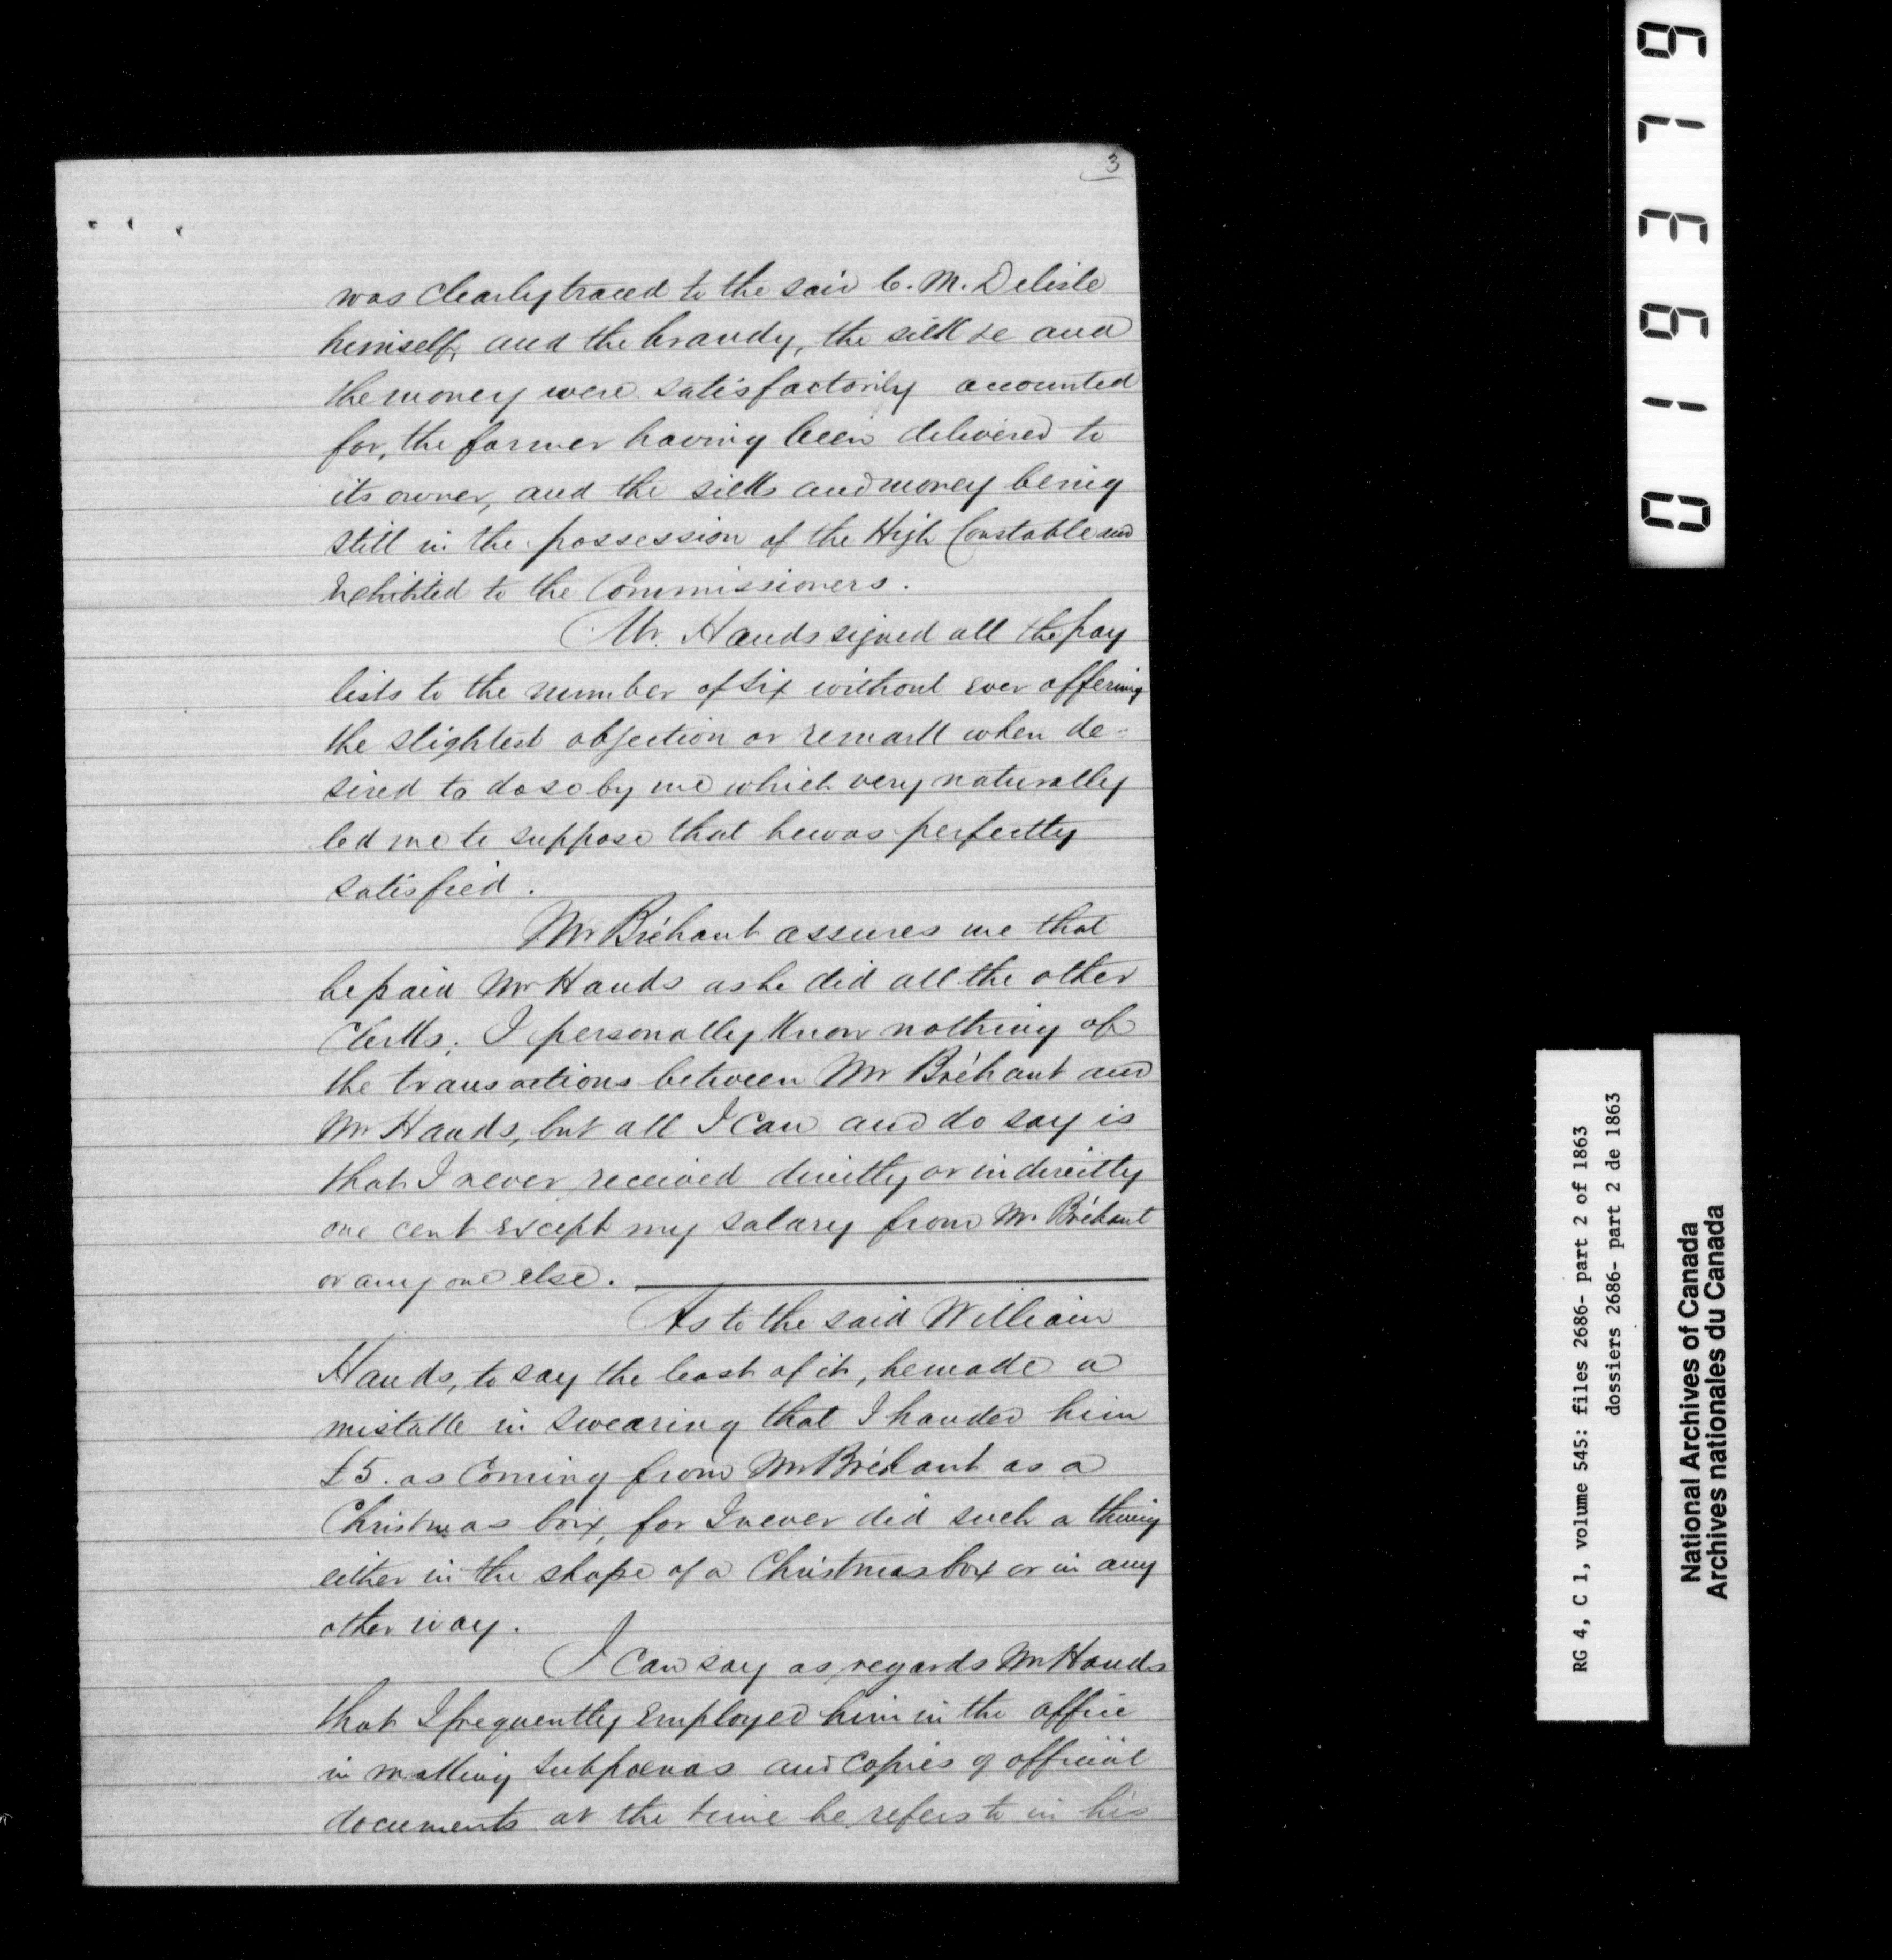 3
was clearly traced to the said C. M. Delisle
himself, and the brandy, the silk &c and
the money were satisfactorily accounted
for, the former having been delivered to
its owner, and the silks and money being
still in the possession of the High Constable and
exhibited to the Commissioners.
Mr. Hands signed all the pay
lists to the number of six without ever offering
the slightest objection or remark when de=
sired to do so by me which very naturally
led me to suppose that he was perfectly
satisfied.
Mr Bréhaut assures me that
he paid Mr Hands as he did all the other
Clerks; I personally know nothing of
the transactions between Mr Bréhaut and
Mr Hands, but all I can and do say is
that I never received directly or indirectly
one cent except my salary from Mr Bréhaut
or any one else.
As to the said William
Hands, to say the least of it, he made a
mistake in swearing that I handed him
£5. as coming from Mr Bréhaut as a
Christmas box, for I never did such a thing
either in the shape of a Christmas box or in any
other way.
I can say as regards Mr Hands
that I frequently employed him in the office
in making subpoenas and copies of official
documents at the time he refers to in his
019379
RG 4, C 1, volume 545: files 2686- part 2 of 1863
dossiers 2686- part 2 de 1863
National Archives of Canada
Archives nationales du Canada